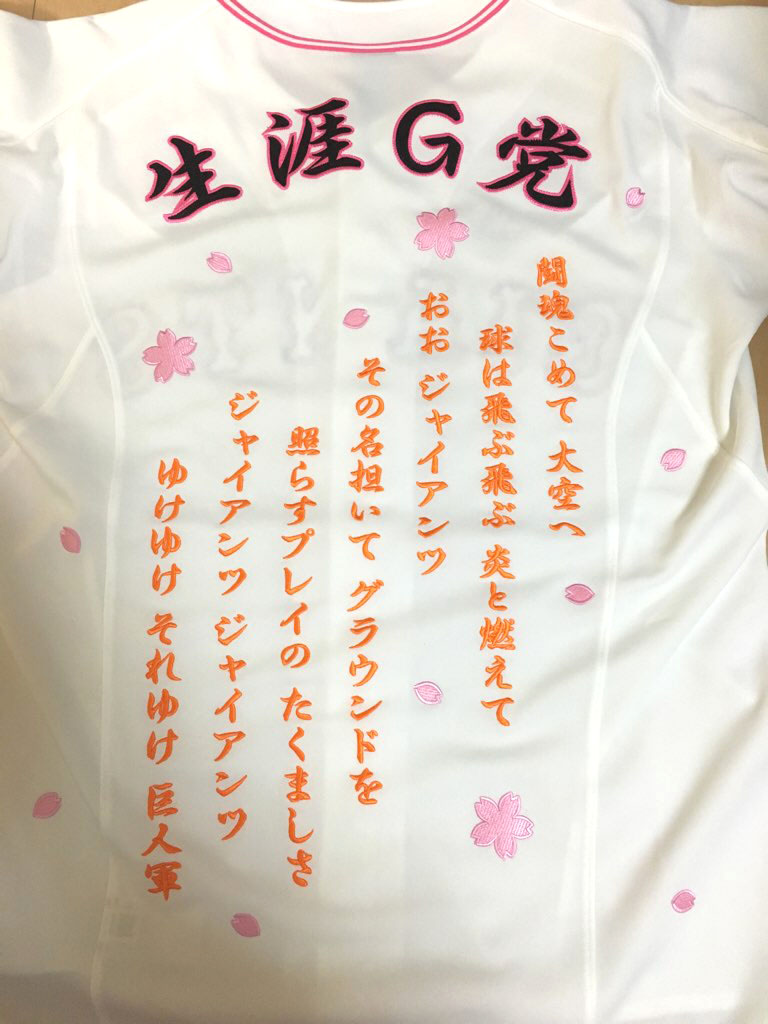 生涯G党
闘魂こめて 大空へ
球は飛ぶ飛ぶ 炎と燃えて
おお ジャイアンツ
その名担いて グラウンドを
照らすプレイの たくましさ
ジャイアンツ ジャイアンツ
ゆけゆけ それゆけ 巨人軍